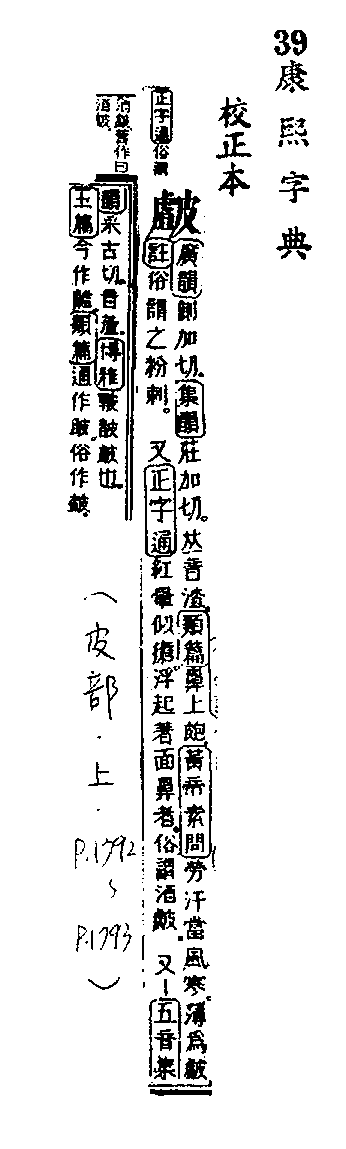 39
康熙字典
校正本
皻
廣韻側加切集韻莊加切𠀤音渣類篇鼻上皰黃帝素問勞汗當風寒薄為皻
註俗謂之粉刺。又正字通紅暈似瘡浮起著面鼻者俗謂酒皻 又五音集
韻采古切音麤博雅皴皵皻也
玉篇今作皻類篇通作皻俗作皻
正字通俗
(皮部·上·
P.1792
~
P.1793
)